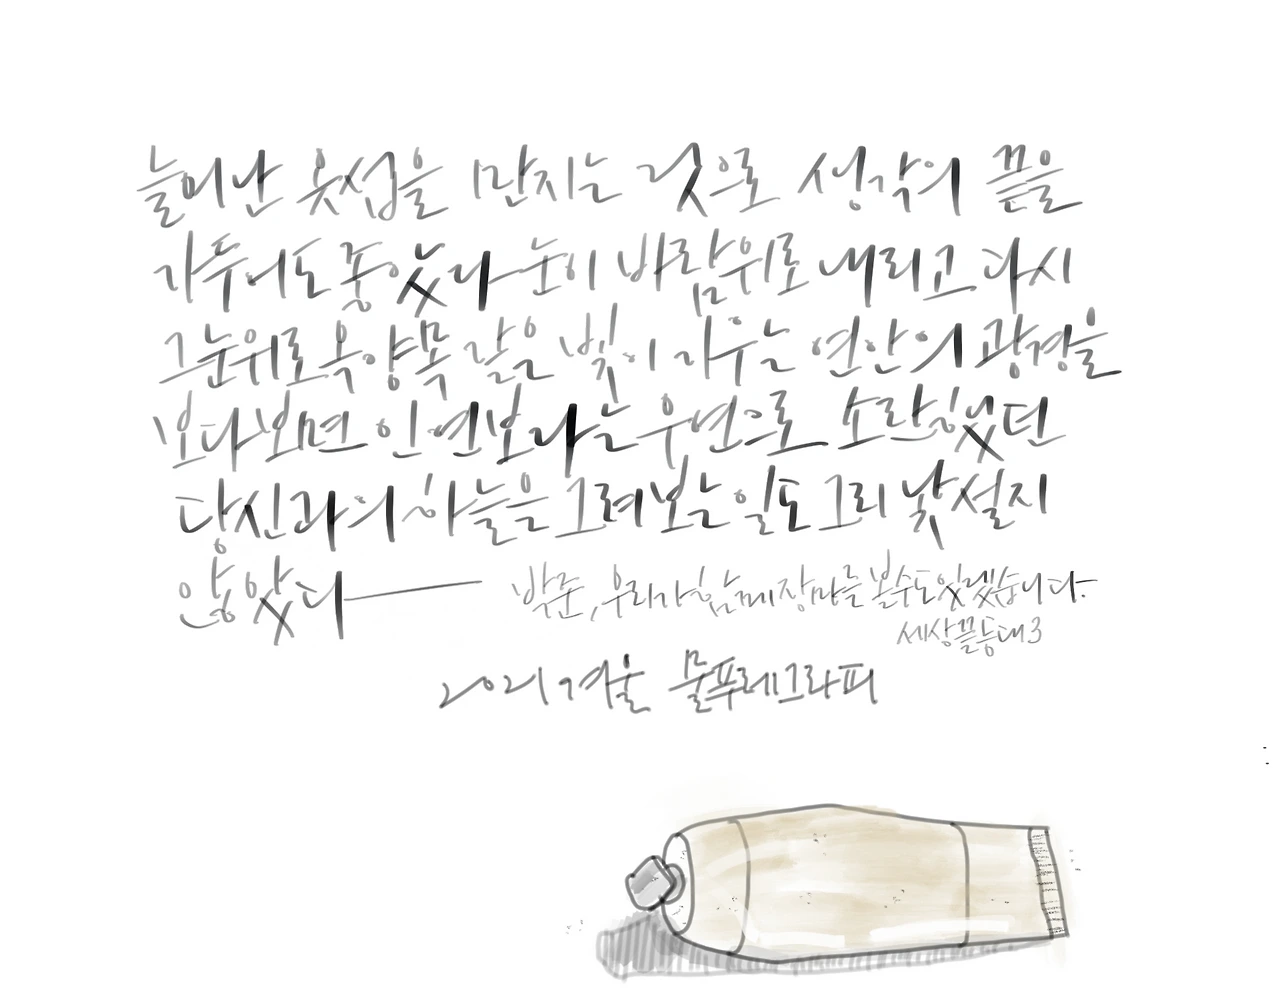 늘어난 옷섶을 만지는 것으로 생각의 끝을
가두어도 좋았다 눈이 바람위로 내리고 다시
그 눈 위로 옥양목 같은 빛이 기우는 연안의 광경을
보다보면 인연보다는 우연으로 소란했던
당신과의 하늘을 그려보는 일도 그리 낯설지
않았다 — 박준, 우리가 함께 장마를 볼수도 있겠습니다.
세상 끝 등대 3
2021 겨울 물푸레그라피